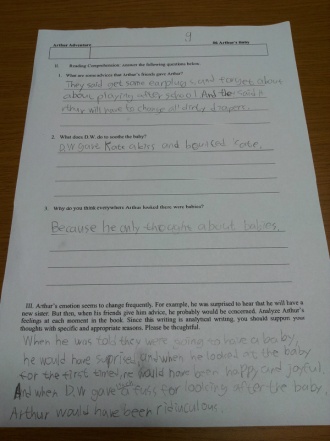 9
Arthur Adventure
#6 Arthur's Baby
II. Reading Comprehension: answer the following questions below.
1. What are some advices that Arthur's friends gave Arthur?
They said get some earplug and forget about
about playing after school And the said
they will have to change all dirty diapers.
2. What does D.W. do to soothe the baby?
D.W. gave Kate a and Kate.
3. Why do you think everywhere Arthur looked there were babies?
Because he only thoughts about babies.
III. Arthur's emotion seems to change frequently. For example, he was surprised to hear that he will have a
new sister. But then, when his friends give him advice, he probably would be concerned. Analyze Arthur's
feelings at each moment in the book. Since this writing is analytical writing, you should support your
thoughts with specific and appropriate reasons. Please be thoughtful.
When he was told they were going to have a baby,
he would have suprised and when he looked at the baby
for the first time, he would have been happy and joyful.
And when D.W gave a fuss for looking after the baby,
Arthur would have been ridiculous.